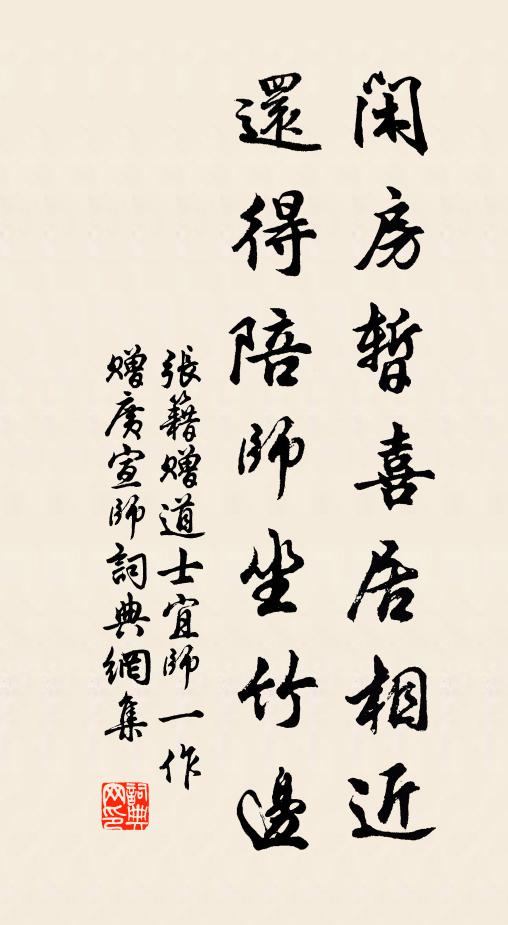 閑房暫喜居相近
還得陪師坐竹邊
張籍贈道士宜師一作
贈廣宣師詞典網集
詞典網印